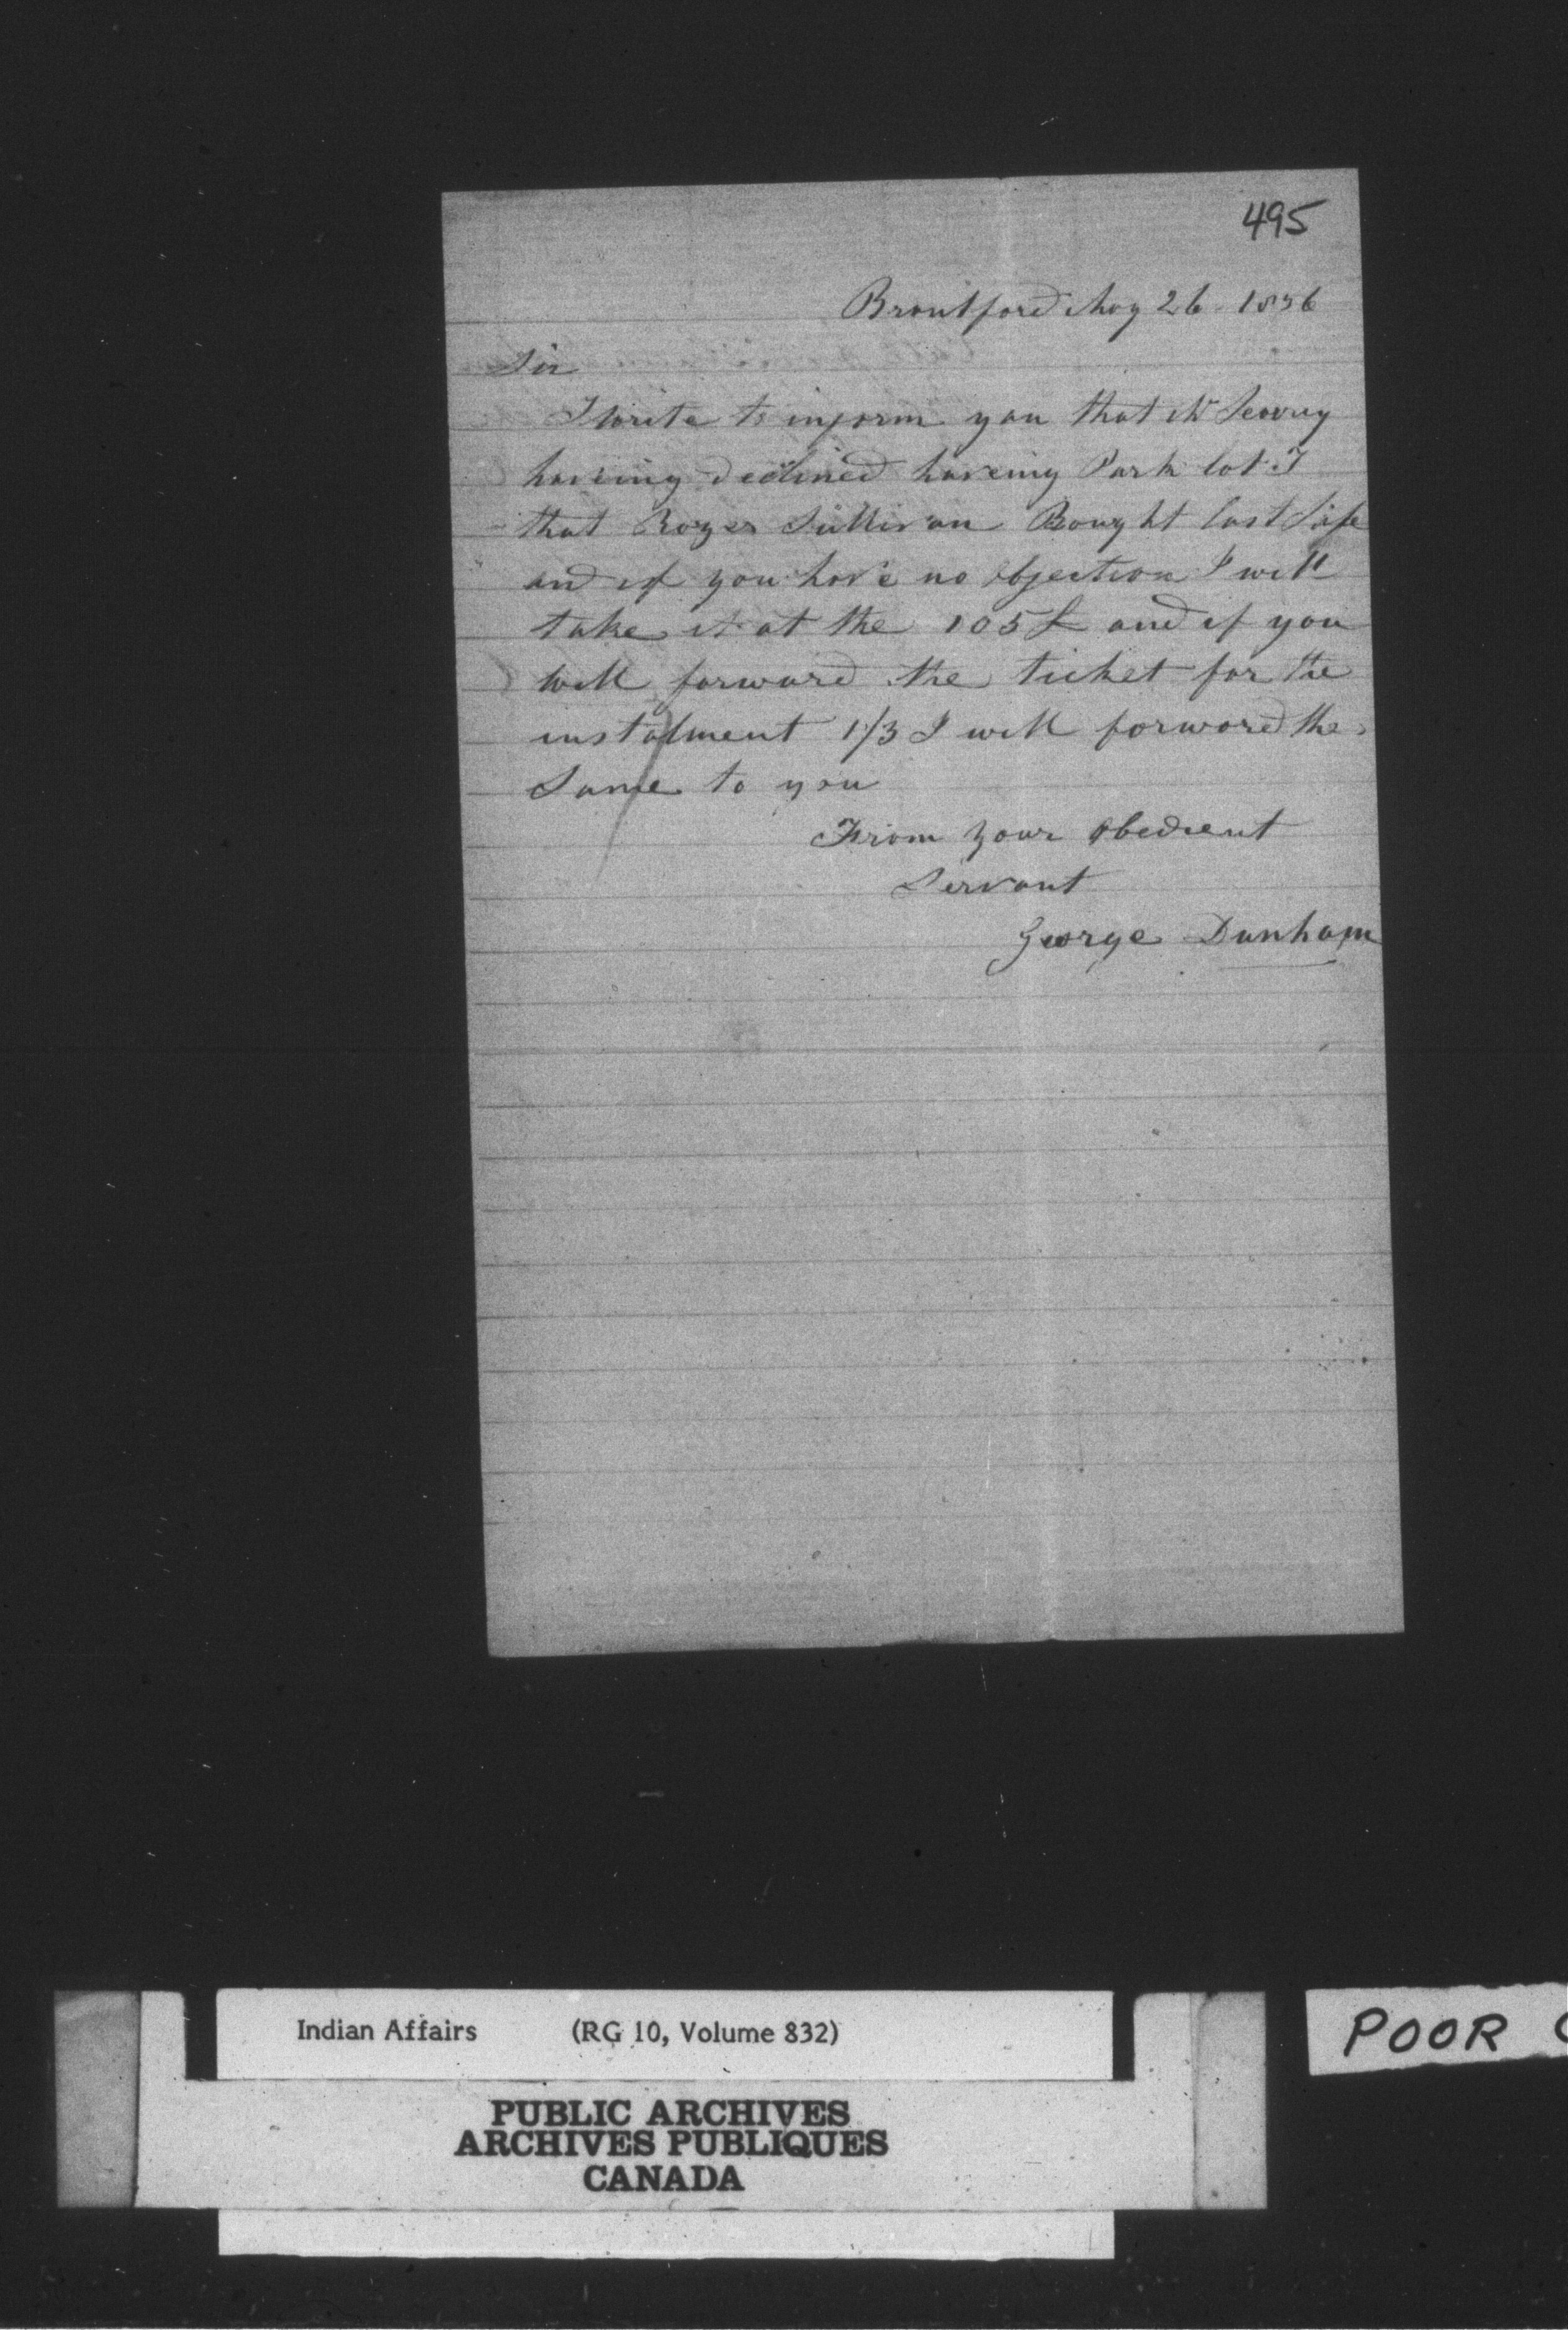 495
Brantford May 26 1856
Sir
I write to inform you that Mr
haveing declined haveing Park lot I
that Roger Sullivan Bought last Sale
and if you have no objection I will
take it at the 105£ and if you
will forward the ticket for the
instalment 1/3 I will forward the
Same to you
From your obedient
Servant
George Dunham
Indian Affairs (RG 10, Volume 832)
PUBLIC ARCHIVES
ARCHIVES PUBLIQUES
CANADA
POOR